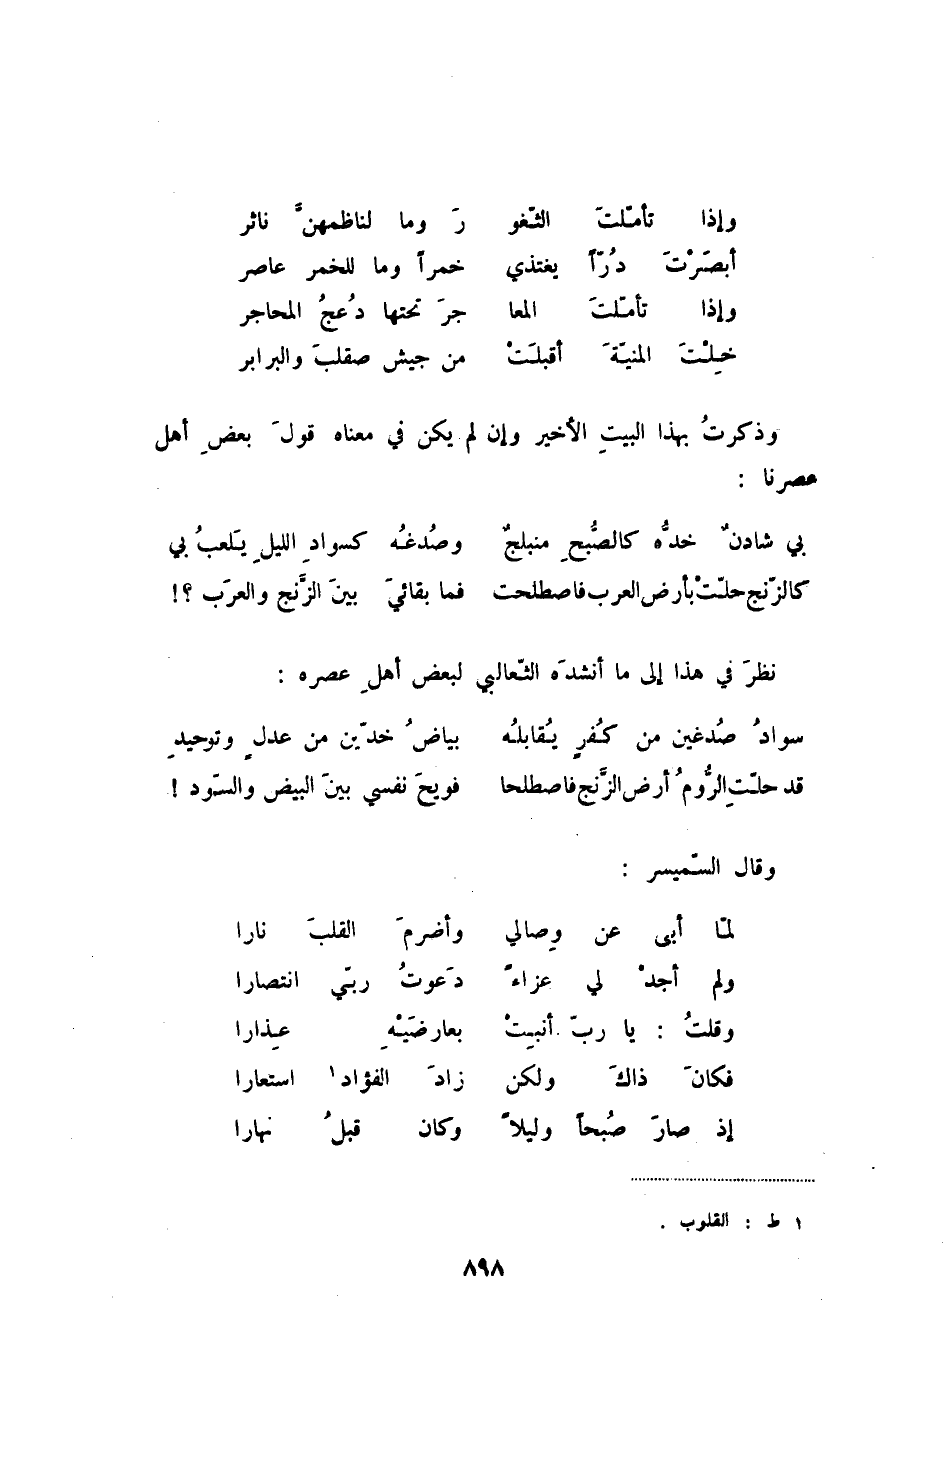 وإذا تأمّلتَ الثّغو رَ وما لناظمهنَّ ناثر
أبصَرْتَ دُرّاً يغتذي خمراً وما للخمر عاصر
وإذا تأمّلتَ المعا جرَ تحتها دُعجُ المحاجر
خِلْتَ المنيّةَ أقبلَتْ من جيش صقلبَ والبرابر
وذكرتُ بهذا البيتِ الأخير وإن لم يكن في معناه قولَ بعضِ أهل
عصرنا :
بي شادنٌ خدُّه كالصُّبحِ منبلجٌ وصُدغُه كسوادِ الليلِ يَلعبُ بي
كالزّنج حلّتْ بأرض العرب فاصطلحت فما بقائيَ بينَ الزَّنج والعرَب ؟!
نظرَ في هذا إلى ما أنشدَه الثّعالبي لبعض أهلِ عصره :
سوادُ صُدغين من كُفرٍ يُقابلُه بياضُ خدّين من عدلٍ وتوحيدِ
قد حلّتِ الرُّومُ أرض الزَّنج فاصطلحا فويحَ نفسي بينَ البيض والسّود !
وقال السّميسر :
لمّا أبى عن وِصالي وأضرمَ القلبَ نارا
ولم أجدْ لي عزاءً دَعوتُ ربّي انتصارا
وقلتُ : يا ربّ أنبِتْ بعارضَيْهِ عِذارا
فكانَ ذاكَ ولكن زادَ الفؤاد١ استعارا
إذ صارَ صُبحاً وليلاً وكان قبلُ نهارا
١ ط : القلوب .
٨٩٨